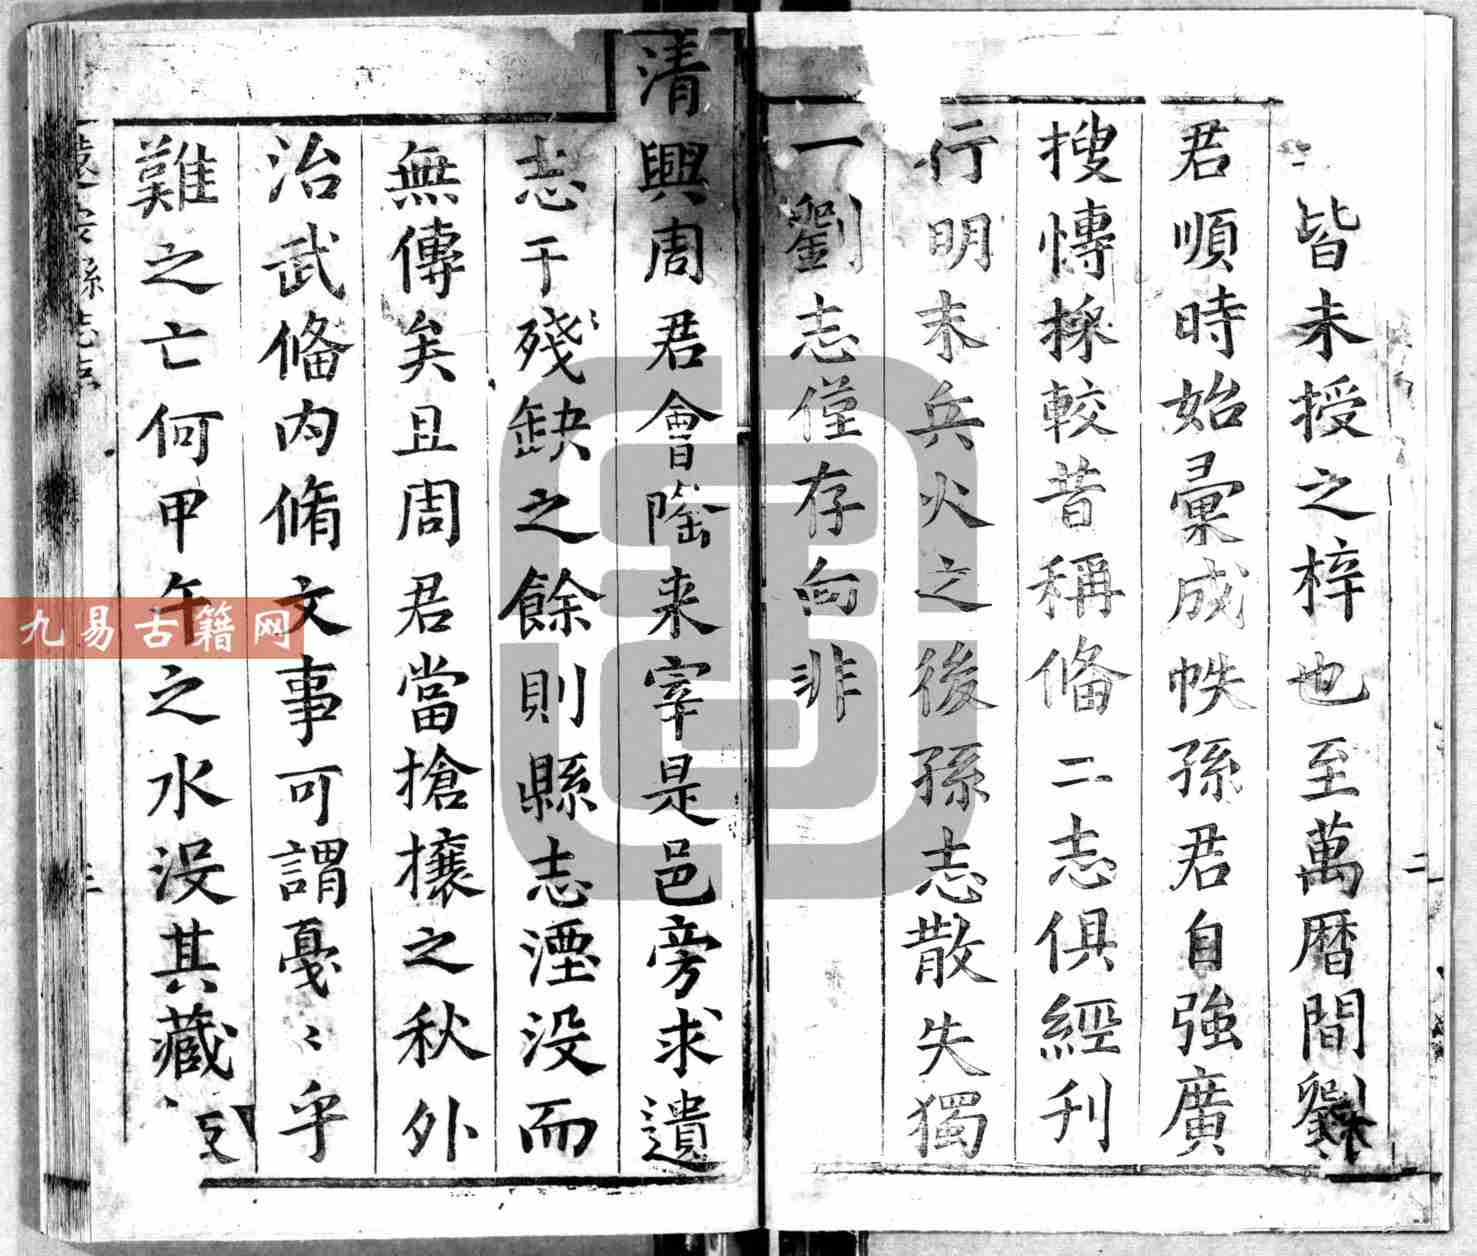 皆未授之梓也至萬曆間劉
君順時始彙成帙孫君自強廣
搜慱採較昔稱俻二志俱經刊
行明末兵火之後孫志散失獨
一劉志僅存向非
清興周君會隆来宰是邑旁求遺
志于殘缺之餘則縣志湮没而
無傳矣且周君當搶攘之秋外
治武俻内脩文事可謂戞〻乎
難之亡何甲午之水没其藏
二
遠安縣志
九易古籍网